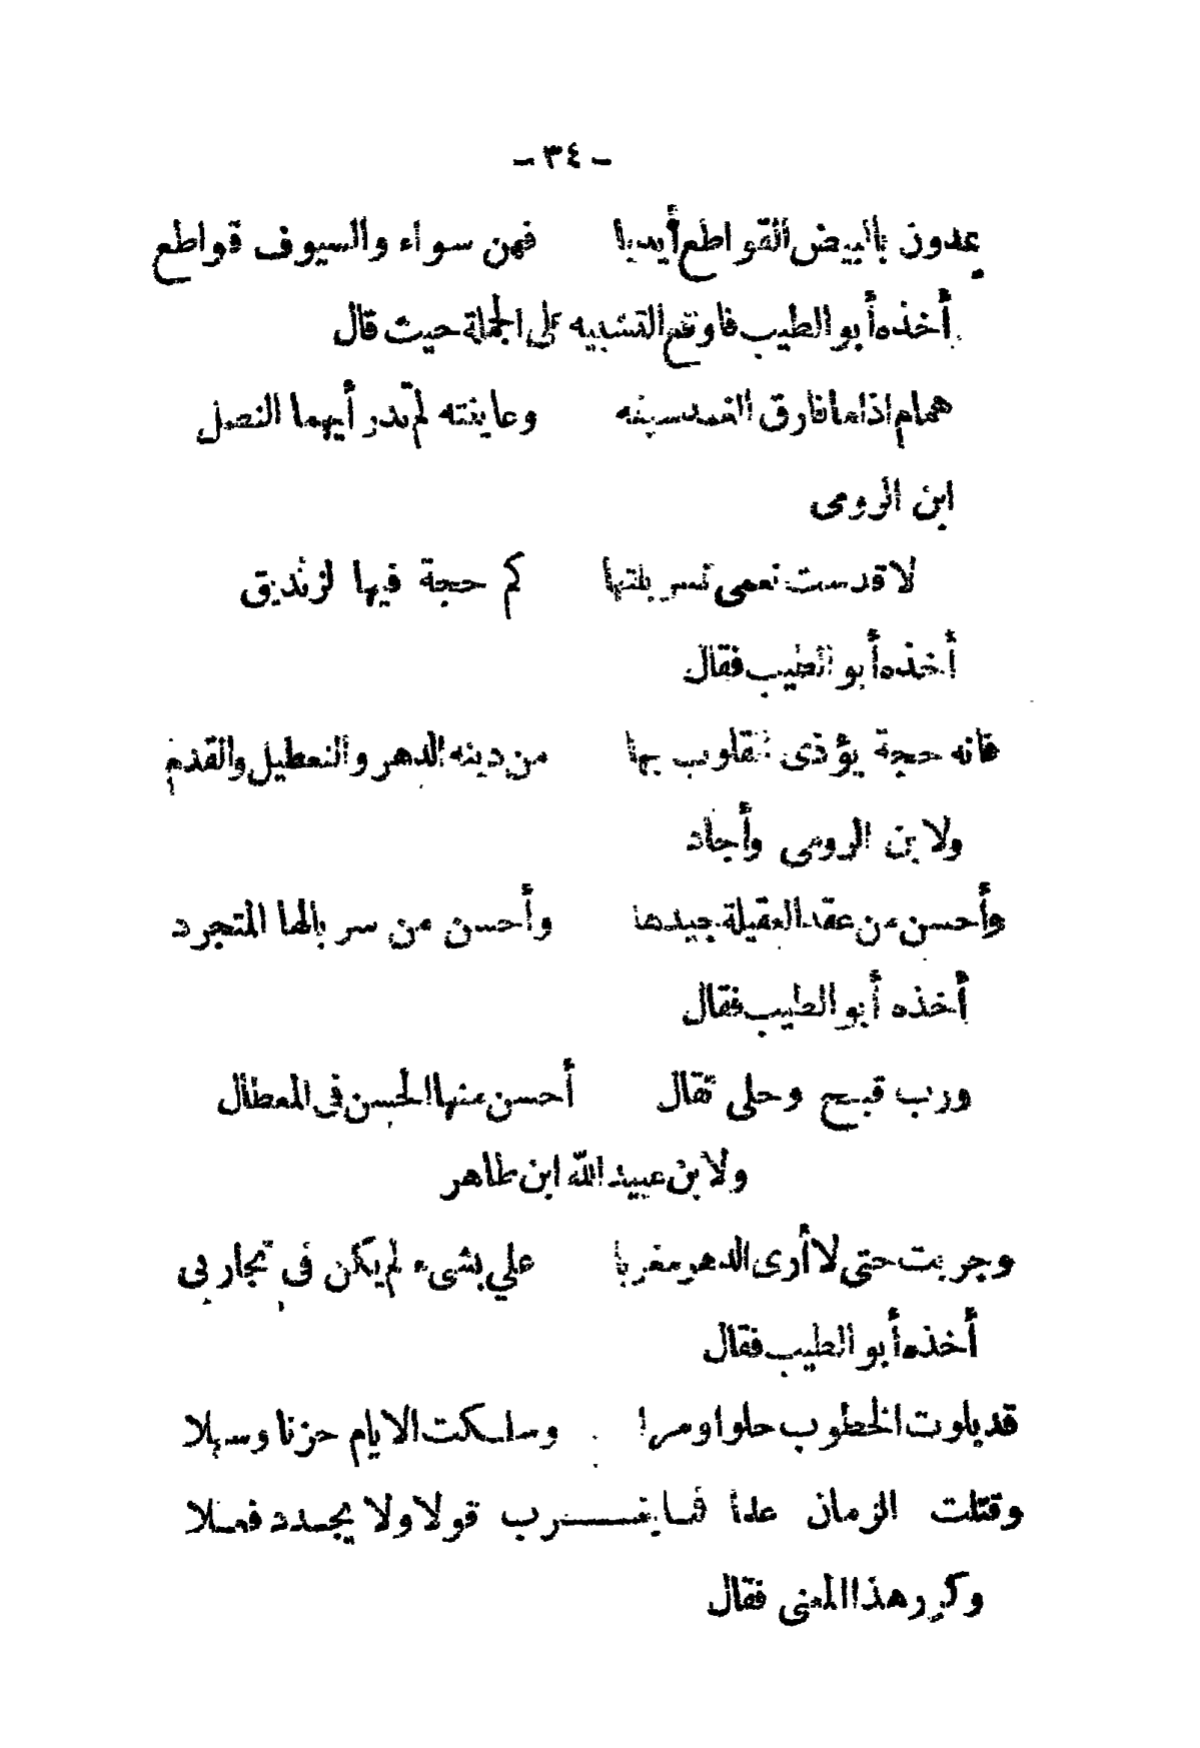 - ٣٤ -
يمدون بالبيض القواطع أيديا فهن سواء والسيوف قواطع
أخذه أبو الطيب فاوقع التشبيه على الجملة حيث قال
همام اذا ما فارق الغمد سيفه وعاينته لم تدر أيهما النصل
ابن الرومى
لا قدست نعمى تسربلتها كم حجة فيها لزنديق
أخذه أبو الطيب فقال
فانه حجة يؤذى القلوب بها من دينه الدهر والتعطيل والقدم
ولابن الرومى وأجاد
وأحسن من عقد العقيلة جيدها وأحسن من سربالها المتجرد
أخذه أبو الطيب فقال
ورب قبح وحلى ثقال أحسن منها الحسن فى المعطال
ولابن عبيد الله ابن طاهر
وجربت حتى لا أرى الدهر مغربا علي بشىء لم يكن في تجاربى
أخذه أبو الطيب فقال
قد بلوت الخطوب حلوا ومرا وسلكت الايام حزنا وسهلا
وقتلت الزمان علما فما يغرب قولا ولا يجدد فعلا
وكرر هذا المعنى فقال